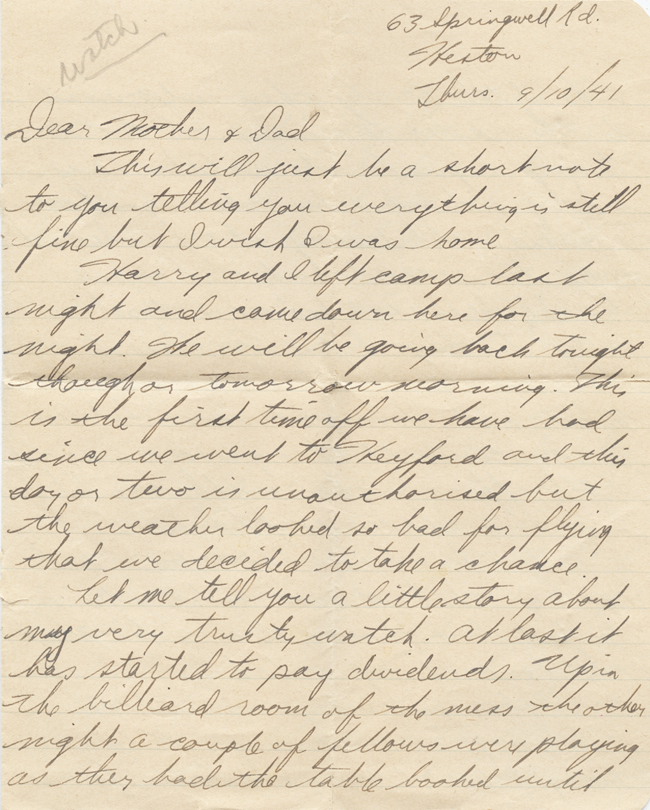 63 Springwell Rd.
watch
Heston
Thurs. 9/10/41
Dear Mother & Dad
This will just be a short note
to you telling you everything is still
fine but I wish I was home
Harry and I left camp last
night and came down here for the
night. We will be going back tonight
though or tomorrow morning. This
is the first time off we have had
since we went to Heyford and this
day or two is unauthorised but
the weather looked so bad for flying
that we decided to take a chance.
Let me tell you a little story about
my very trusty watch. At last it
has started to pay dividends. Up in
the billiard room of the mess the other
night a couple of fellows were playing
as they had the table booked until